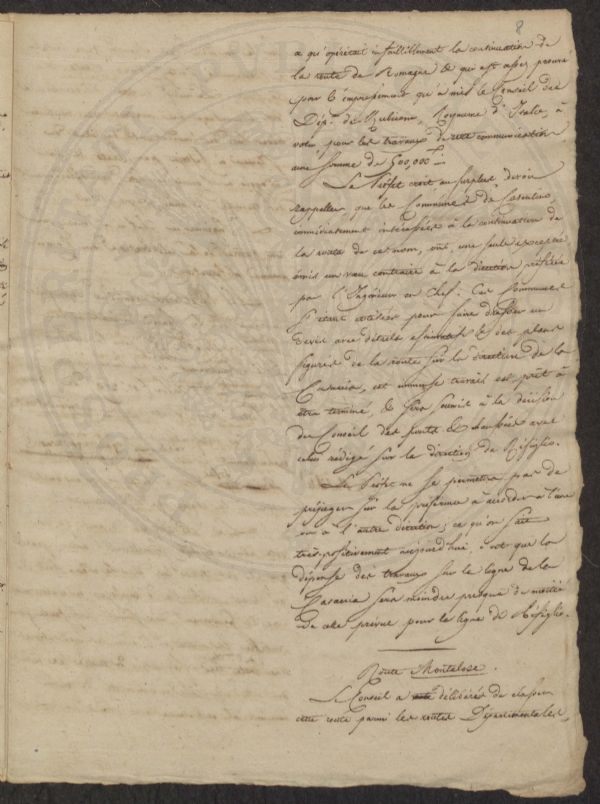 8
a qu'opérerait infailliblement la continuation de
la route de Romagne & qui est assez prouvé
par l'empressement qu'a mis le Conseil du
Dép.t du Rubicon, Royaume d'Italie, à
voter pour les travaux de cette communication
une somme de 500,000
Le Préfet croit au surplus devoir
rappeller que les Communes du Casentino,
immédiatement intéressées à la continuation de
la route de ce nom, ont, une seule exceptée
émis un vœu contraire à la direction préférée
par l'Ingénieur en Chef. Ces Communes
s'étant cotisées pour faire dresser un
devis avec détails estimatifs & des plans
figurés de la route sur la direction de la
cet immense travail est prêt à
être terminé, & sera soumis à la décision
du Conseil des ponts & chaussées avec
celui rédigé sur la direction de
Le Préfet ne se permettra pas de
préjuger sur la préférence à accorder à l'une
ou à l'autre direction; ce qu'on sait
très-positivement aujourd'hui, c'est que la
dépense des travaux sur la ligne de la
sera moindre presque de moitié
de celle prévue pour la ligne de
Route Montelose.
Le Conseil a délibéré de classer
cette route parmi les routes Départementales,